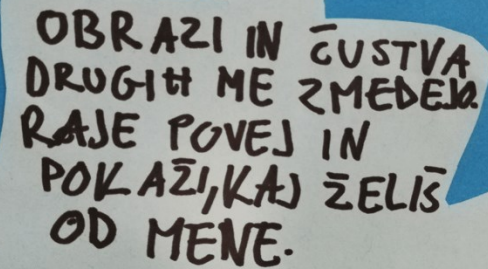 OBRAZI IN ČUSTVA
DRUGIH ME ZMEDEJO.
RAJE POVEJ IN
POKAŽI, KAJ ŽELIŠ
OD MENE.